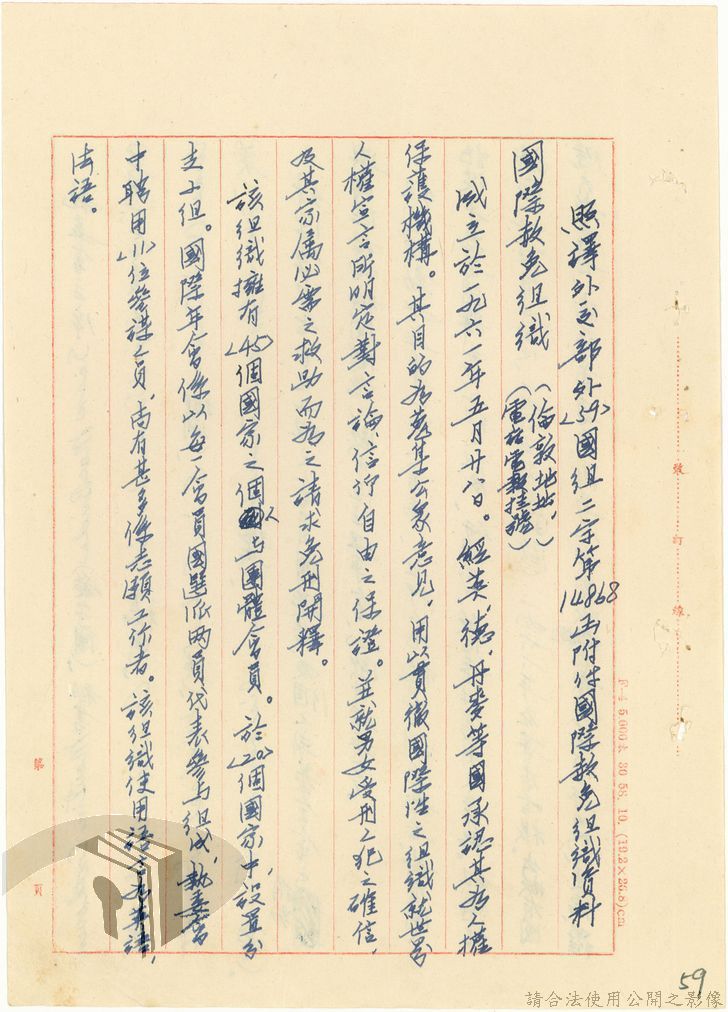 照譯外交部外<59>國組二字第14868函附件國際赦免組織資料
國際赦免組織（倫敦地址、電話電報掛號）
成立於一九六一年五月廿八日。經英、德、丹麥等國承認其為人權
保護機構。其目的為蒐集公眾意見，用以貫徹國際性之組織就世界
人權宣言所明定對言論、信仰自由之保證。並就男女受刑人犯之確信，
及其家屬必需之救助而為之請求免刑開釋。
該組織擁有<45>個國家之個人與團體會員。於<20>個國家中，設置分
支小組。國際年會係以每一會員國選派兩員代表參與組成，執委會
中聘用<11>位參謀人員，尚有甚多係志願工作者。該組織使用語言為英語，
法語。
裝 訂 線
第 頁
F-4 5,000本 30 58. 10. (19.2×26.8)cm
59
請合法使用公開之影像